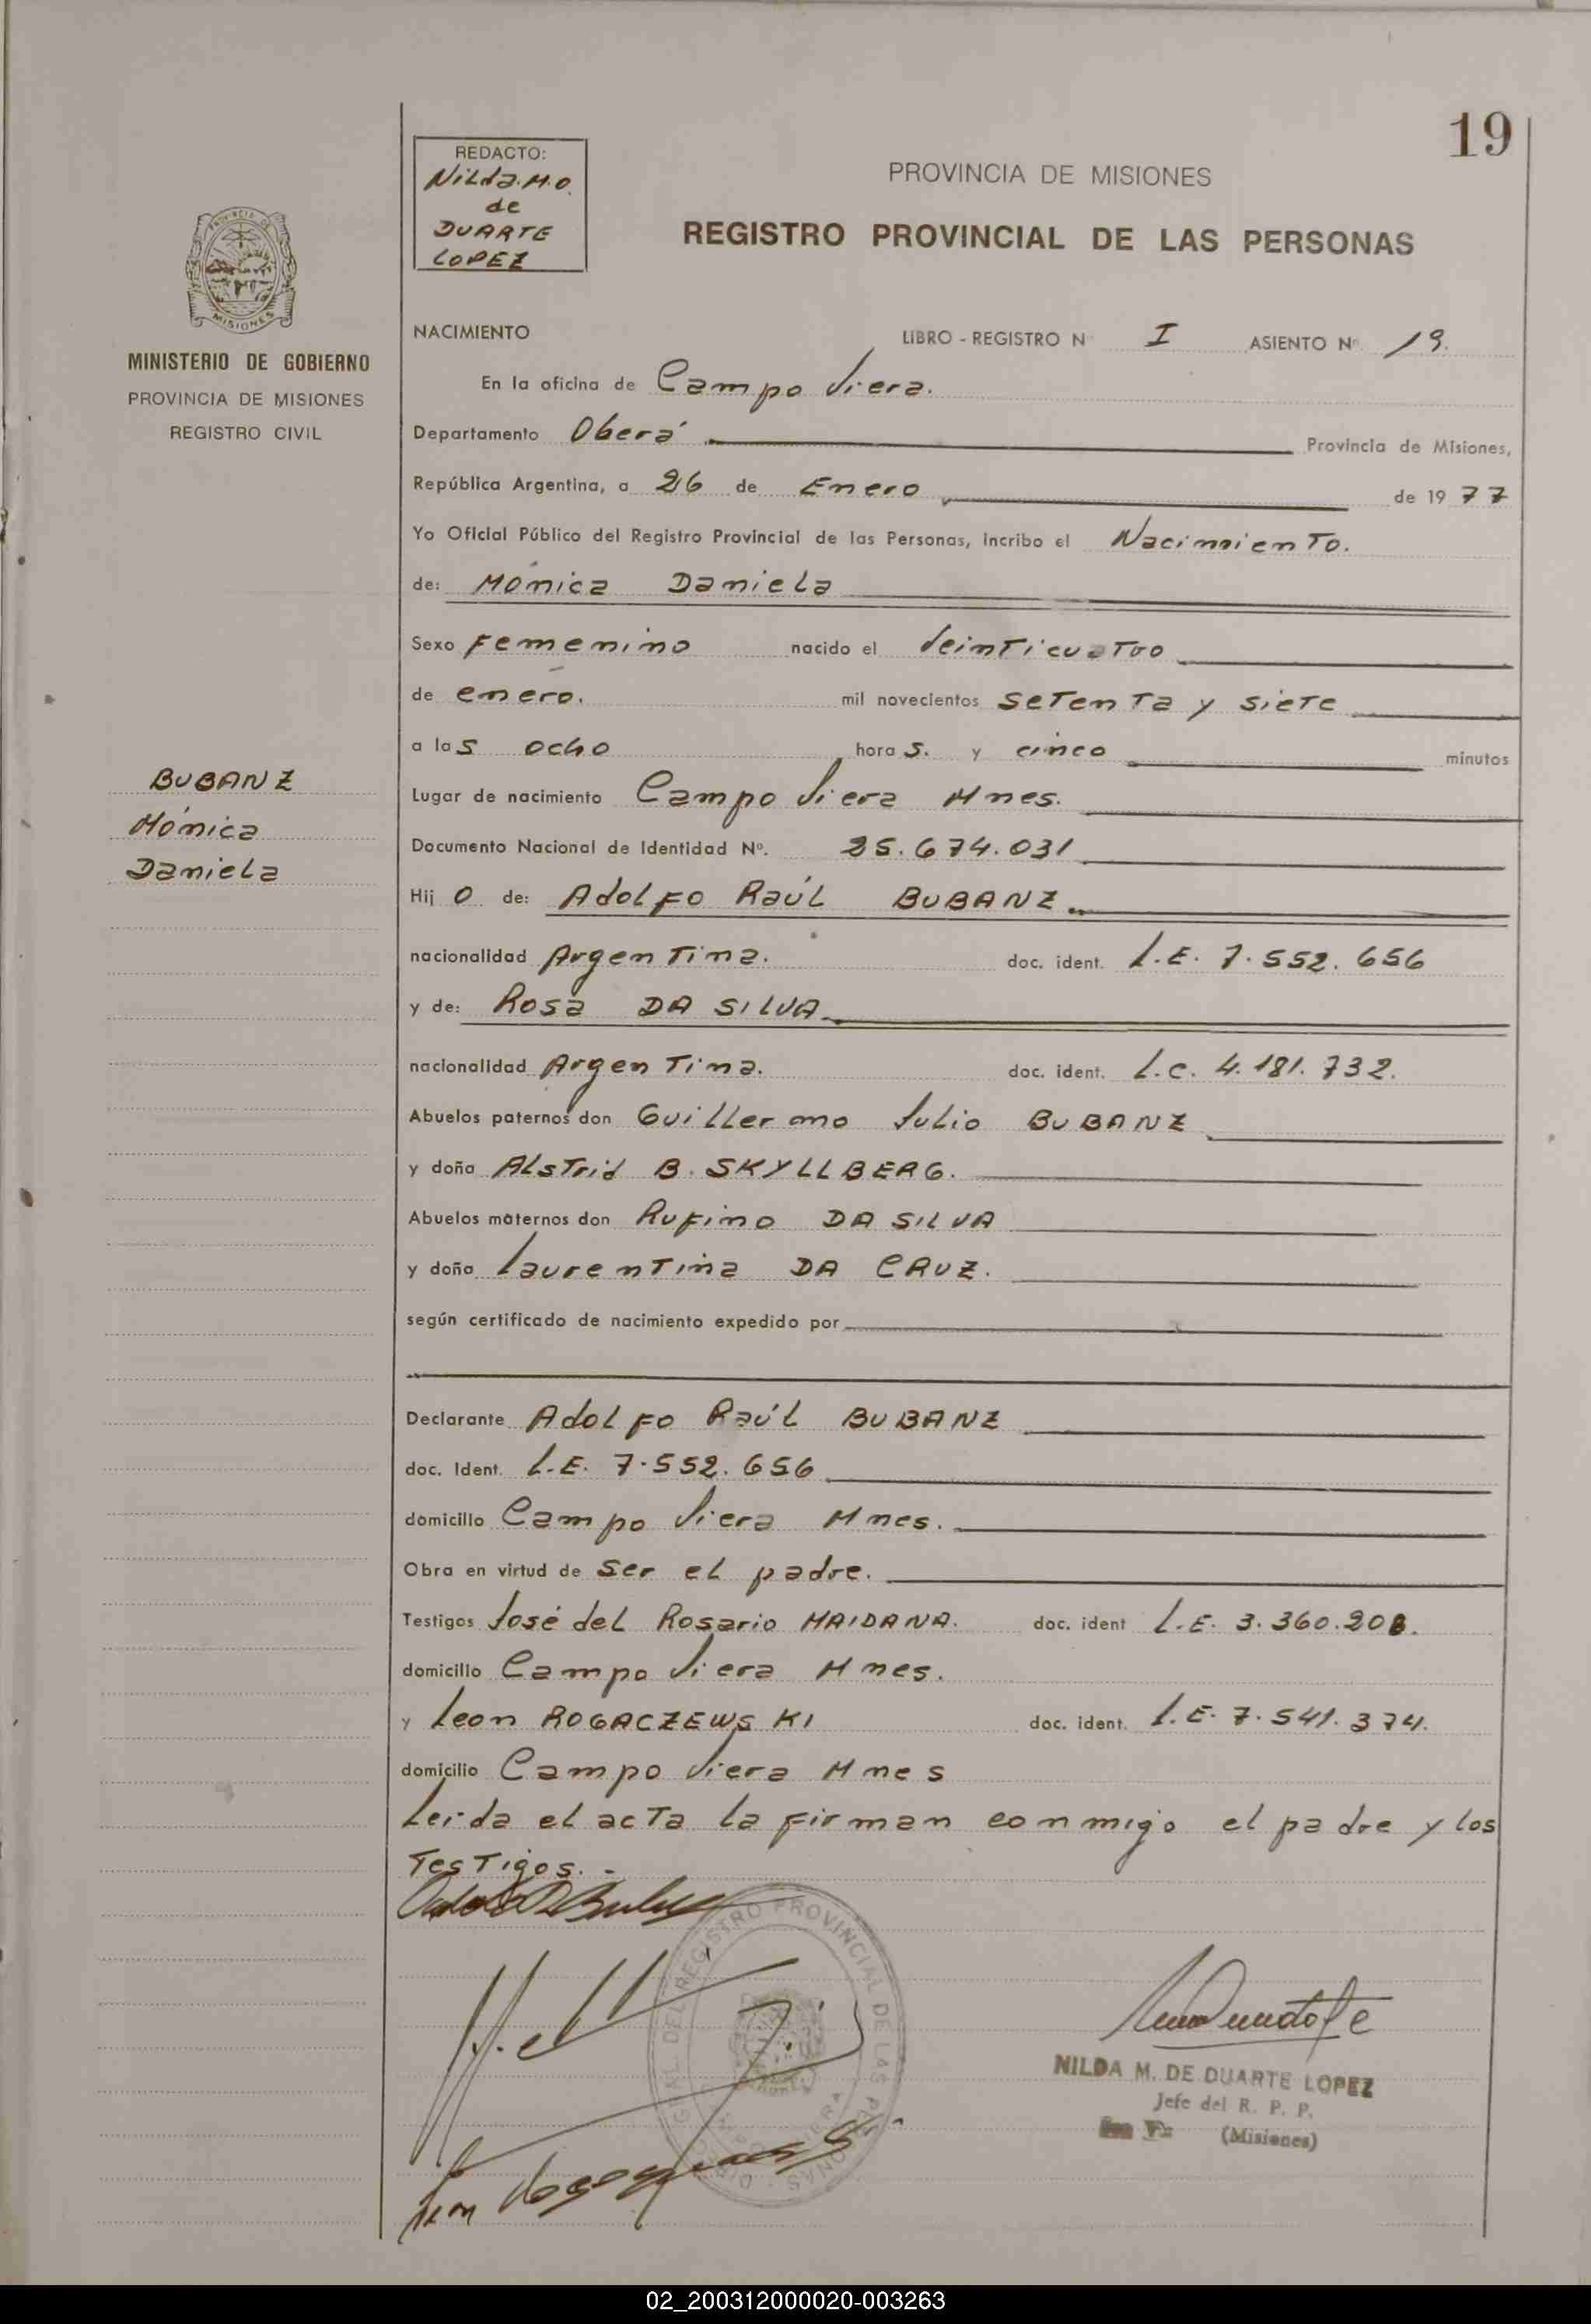 19
REDACTO:
Nilda.M.O.
de
DUARTE
LOPEZ
PROVINCIA DE MISIONES
REGISTRO PROVINCIAL DE LAS PERSONAS
PROVINCIA DE
MISIONES
MINISTERIO DE GOBIERNO
PROVINCIA DE MISIONES
REGISTRO CIVIL
NACIMIENTO LIBRO - REGISTRO Nº I ASIENTO Nº 19.
En la oficina de Campo Viera.
Departamento Oberá Provincia de Misiones,
República Argentina, a 26 de Enero de 1977
Yo Oficial Público del Registro Provincial de las Personas, incribo el Nacimiento.
de: Mónica Daniela
Sexo Femenino nacido el Veinticuatro
de enero. mil novecientos setenta y siete
a las ocho horas. y cinco minutos
Lugar de nacimiento Campo Viera Mnes.
Documento Nacional de Identidad Nº. 25.674.031
Hijo de: Adolfo Raúl BUBANZ
nacionalidad Argentina. doc. ident. L.E. 7.552.656
y de: Rosa DA SILVA
nacionalidad Argentina. doc. ident. L.C. 4.181.732.
Abuelos paternos don Guillermo Julio BUBANZ
y doña Alstrid B. SKYLLBERG.
Abuelos maternos don Rufino DA SILVA
y doña Laurentina DA CRUZ.
según certificado de nacimiento expedido por
Declarante Adolfo Raúl BUBANZ
doc. Ident. L.E. 7.552.656
domicilio Campo Viera Mnes.
Obra en virtud de ser el padre.
Testigos José del Rosario MAIDANA. doc. ident L.E. 3.360.208.
domicilio Campo Viera Mnes.
y Leon ROGACZEWSKI doc. ident. L.E. 7.541.374.
domicilio Campo Viera Mnes
Leida el acta la firman conmigo el padre y los
Testigos.-
BUBANZ
Mónica
Daniela
REGISTRO PROVINCIAL DE LAS PERSONAS
NILDA M. DE DUARTE LOPEZ
Jefe del R. P. P.
(Misiones)
02_200312000020-003263